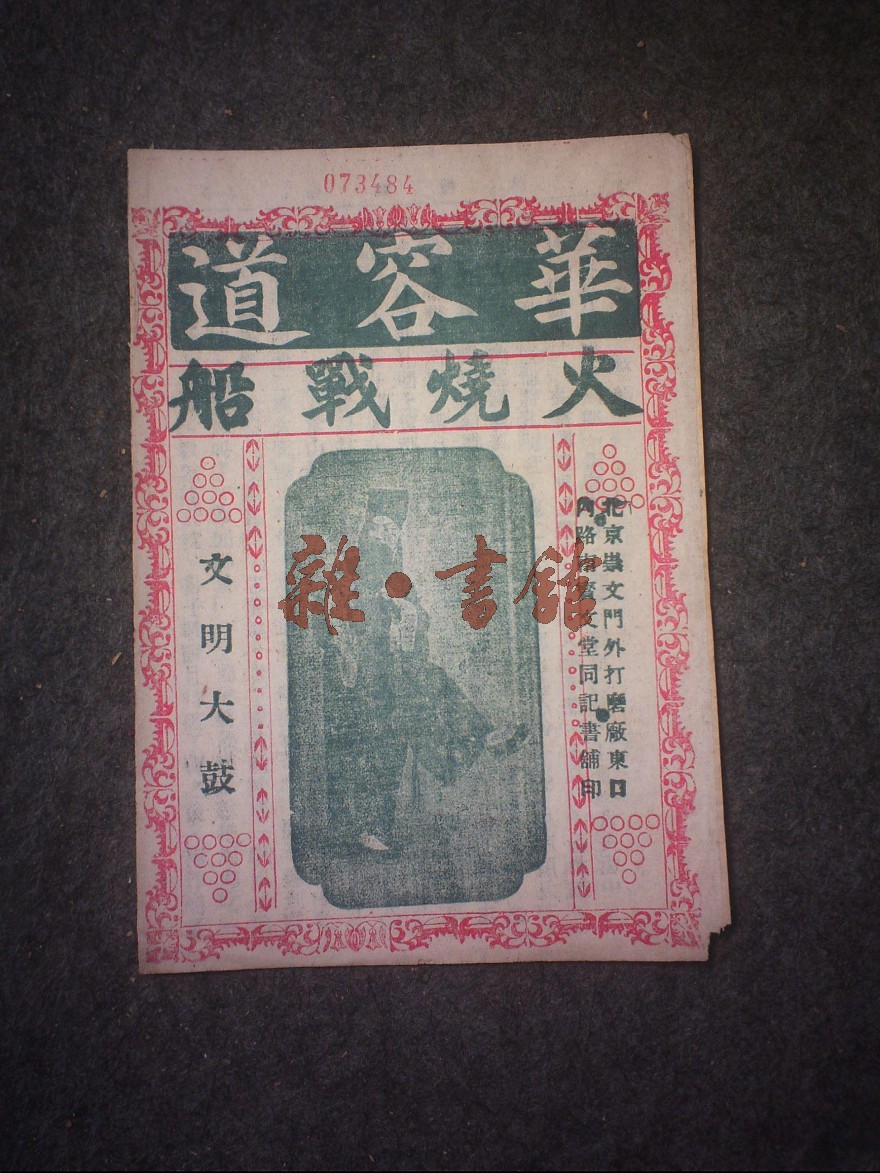 073484
華容道
火燒戰船
北京崇文門外打磨廠東口
內路南寶文堂同記書舖印
文明大鼓
雜·書館